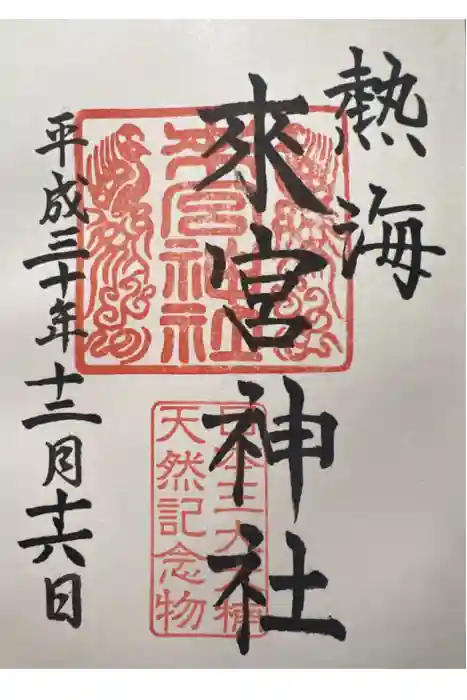 熱海
來宮神社
平成三十年十二月十六日
來宮神社
天然記念物